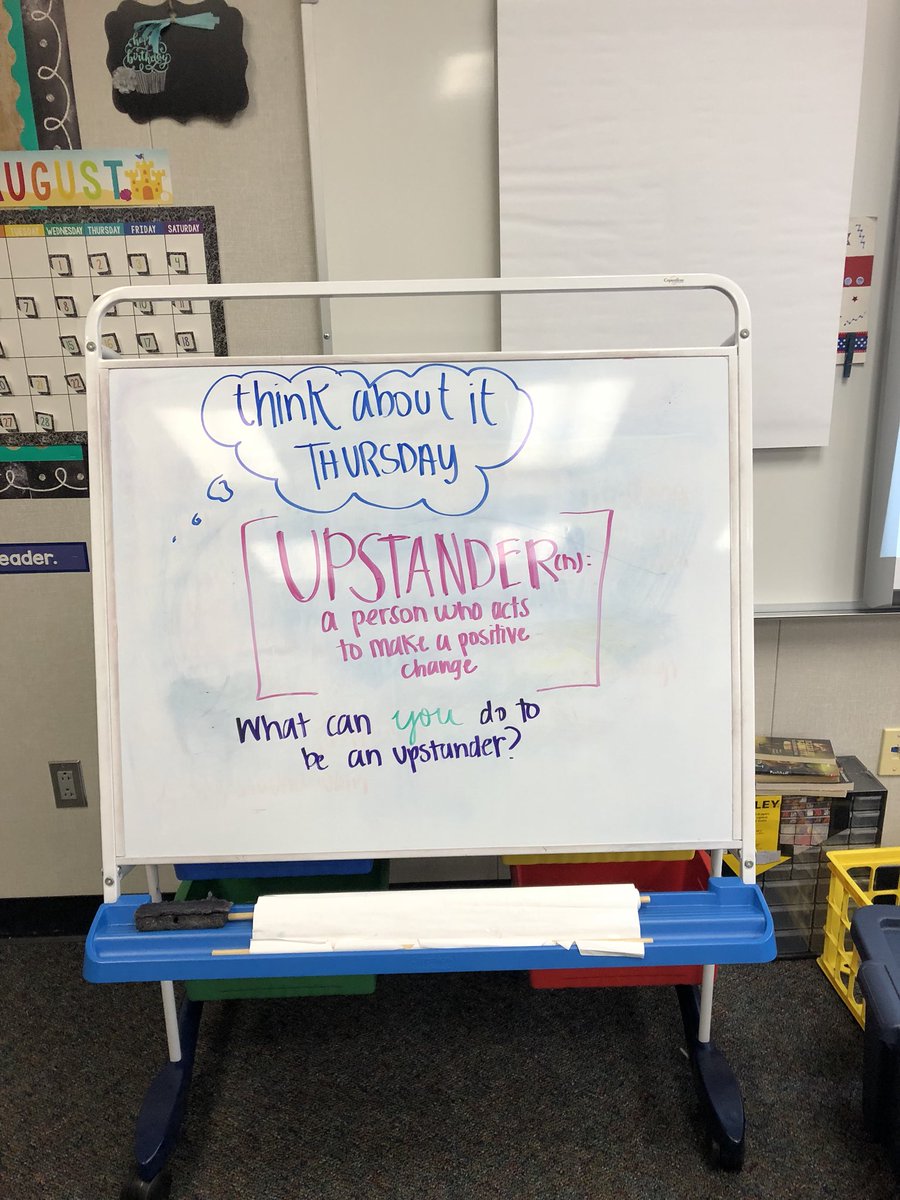 happy
birthday
AUGUST
TUESDAY WEDNESDAY THURSDAY FRIDAY SATURDAY
1 2 3 4
7 8
18
21 22
27 28
eader.
think about it
THURSDAY
UPSTANDER (n):
a person who acts
to make a positive
change
What can you do to
be an upstander?
LEY